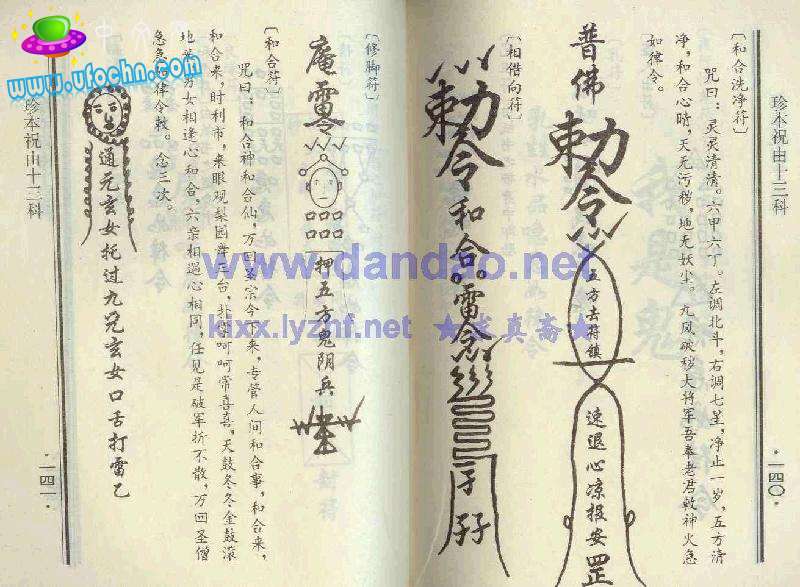 珍本祝由十三科
·一四〇·
〔和合洗净符〕
咒曰：灵灵清清。六甲六丁。左调北斗，右调七星，净止一岁，五方清
净，和合心时，天无污秽，地无妖尘。九凤破秽大将军吾奉老君敕神火急
如律令。
普佛
勅令
五方去符镇
速退心凉报安
〔相借向符〕
勅令和合。雷念
〔修脚符〕
庵雷零
押五方鬼阴兵
〔和合符〕
咒曰：和合神和合仙，万回圣宗令下来，专管人间和合事，和合来，
和合来，时利市，来眼观梨园舞三台，扑掌呵呵常喜喜，天鼓冬冬金鼓滚
男女相逢心和合，六亲相遇心相同，任见是破军折不散，万回圣僧
急急如律令敕。念三次。
通元玄女托过九咒玄女口舌打雷乙
珍本祝由十三科
·一四一·
中文网
www.ufochn.com
www.dandao.net
kixx.lyzhf.net ★求真斋★